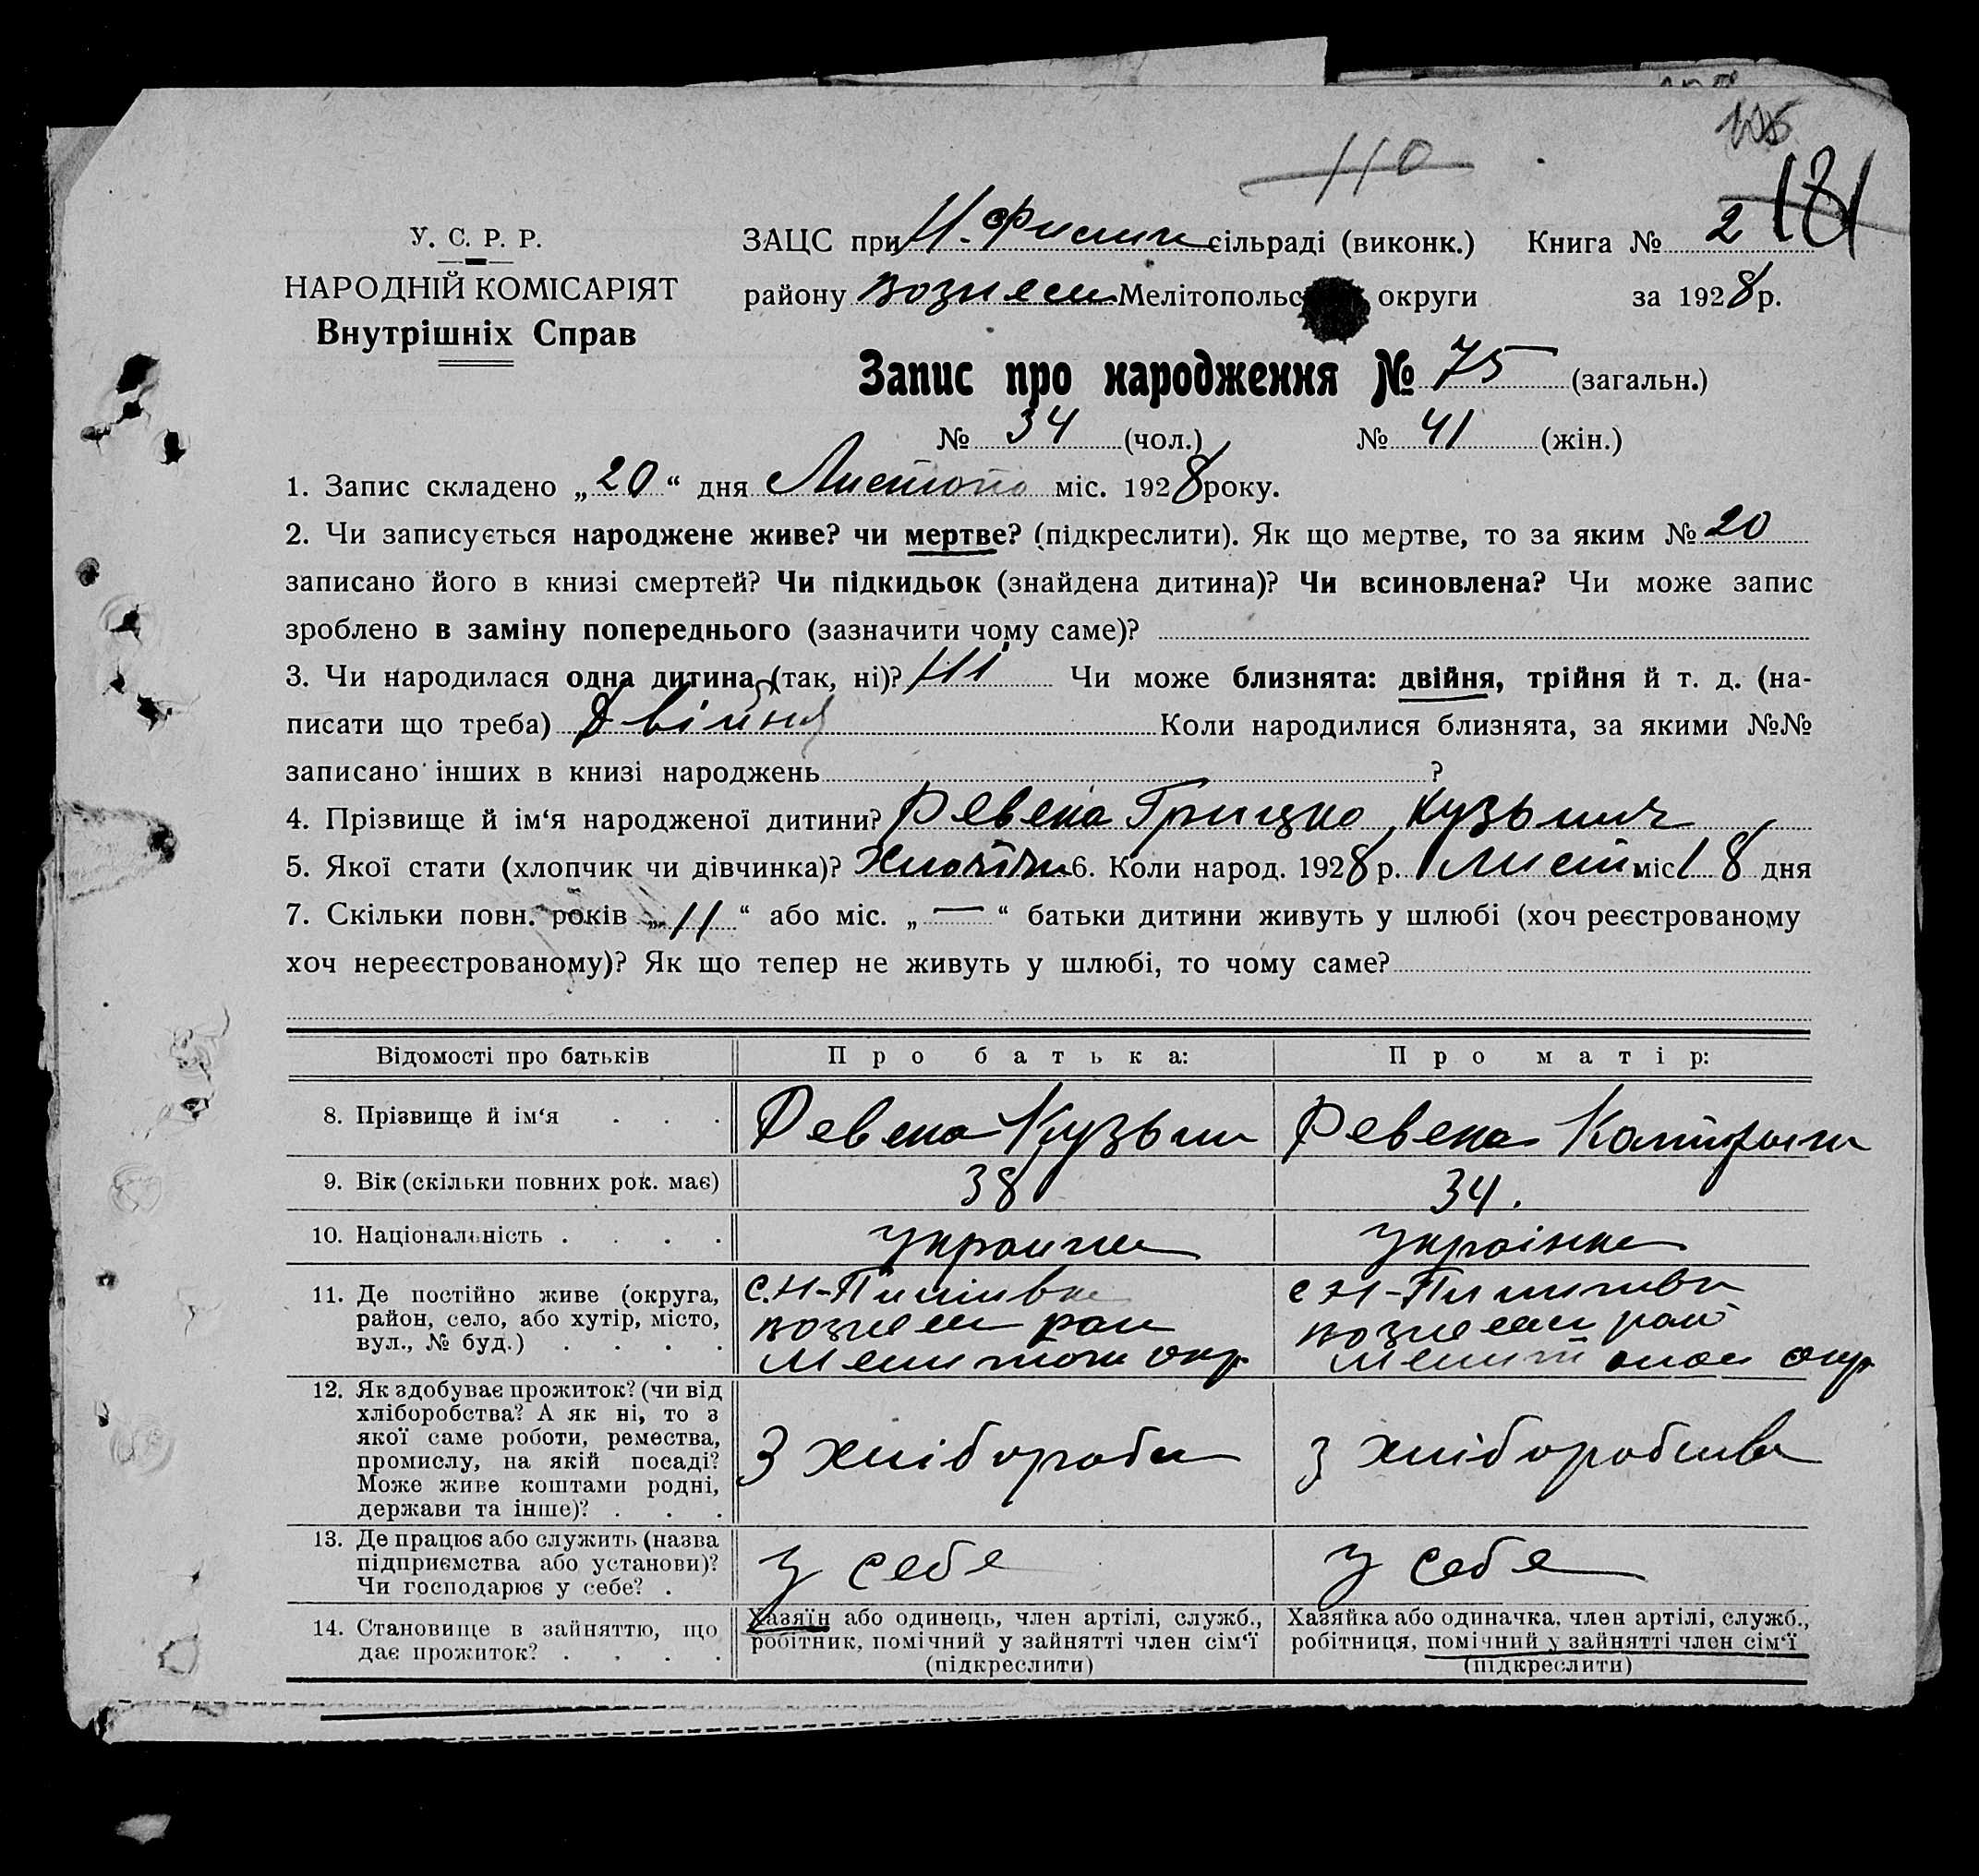 110
105
181
У. С. Р. Р.
НАРОДНІЙ КОМІСАРІЯТ
Внутрішніх Справ
ЗАЦС при Н. Филип сільраді (виконк.) Книга № 2
району Вознесен Мелітопольс округи за 1928 р.
Запис про народження № 75 (загальн.)
№ 34 (чол.) № 41 (жін.)
1. Запис складено „20“ дня Листопо міс. 1928 року.
2. Чи записується народжене живе? чи мертве? (підкреслити). Як що мертве, то за яким № 20
записано його в книзі смертей? Чи підкидьок (знайдена дитина)? Чи всиновлена? Чи може запис
зроблено в заміну попереднього (зазначити чому саме)?
3. Чи народилася одна дитина (так, ні)? Ні Чи може близнята: двійня, трійня й т. д. (на-
писати що треба) Двійня Коли народилися близнята, за якими №№
записано інших в книзі народжень ?
4. Прізвище й ім‘я народженої дитини? Ревека Грицко Кузьмич
5. Якої стати (хлопчик чи дівчинка)? 6. Коли народ. 1928 р. Лист міс 18 дня
7. Скільки повн. років „11“ або міс. „—“ батьки дитини живуть у шлюбі (хоч реєстрованому
хоч нереєстрованому)? Як що тепер не живуть у шлюбі, то чому саме?
Відомості про батьків Про батька: Про матір:
8. Прізвище й ім‘я . . . Ревека Кузьма Ревека Катирина
9. Вік (скільки повних рок. має) 38 34.
10. Національність . . . . украинец українка
11. Де постійно живе (округа, район, село, або хутір, місто, вул., № буд.) . . . .
с. Н-Пилипівка
вознесен рай
Мелитоп окр
с Н-Пилипівка
вознесен рай
Мелитопол окр
12. Як здобуває прожиток? (чи від
хліборобства? А як ні, то з
якої саме роботи, ремества,
промислу, на якій посаді?
Може живе коштами родні,
держави та інше)? . . .
З хлібороби З хліборобства
13. Де працює або служить (назва
підприємства або установи)?
Чи господарює у себе? .
У себе У себе
14. Становище в зайняттю, що
дає прожиток? . . . .
Хазяїн або одинець, член артілі, служб.,
робітник, помічний у зайнятті член сім‘ї
(підкреслити)
Хазяйка або одиначка, член артілі, служб.,
робітниця, помічний у зайнятті член сім‘ї
(підкреслити)